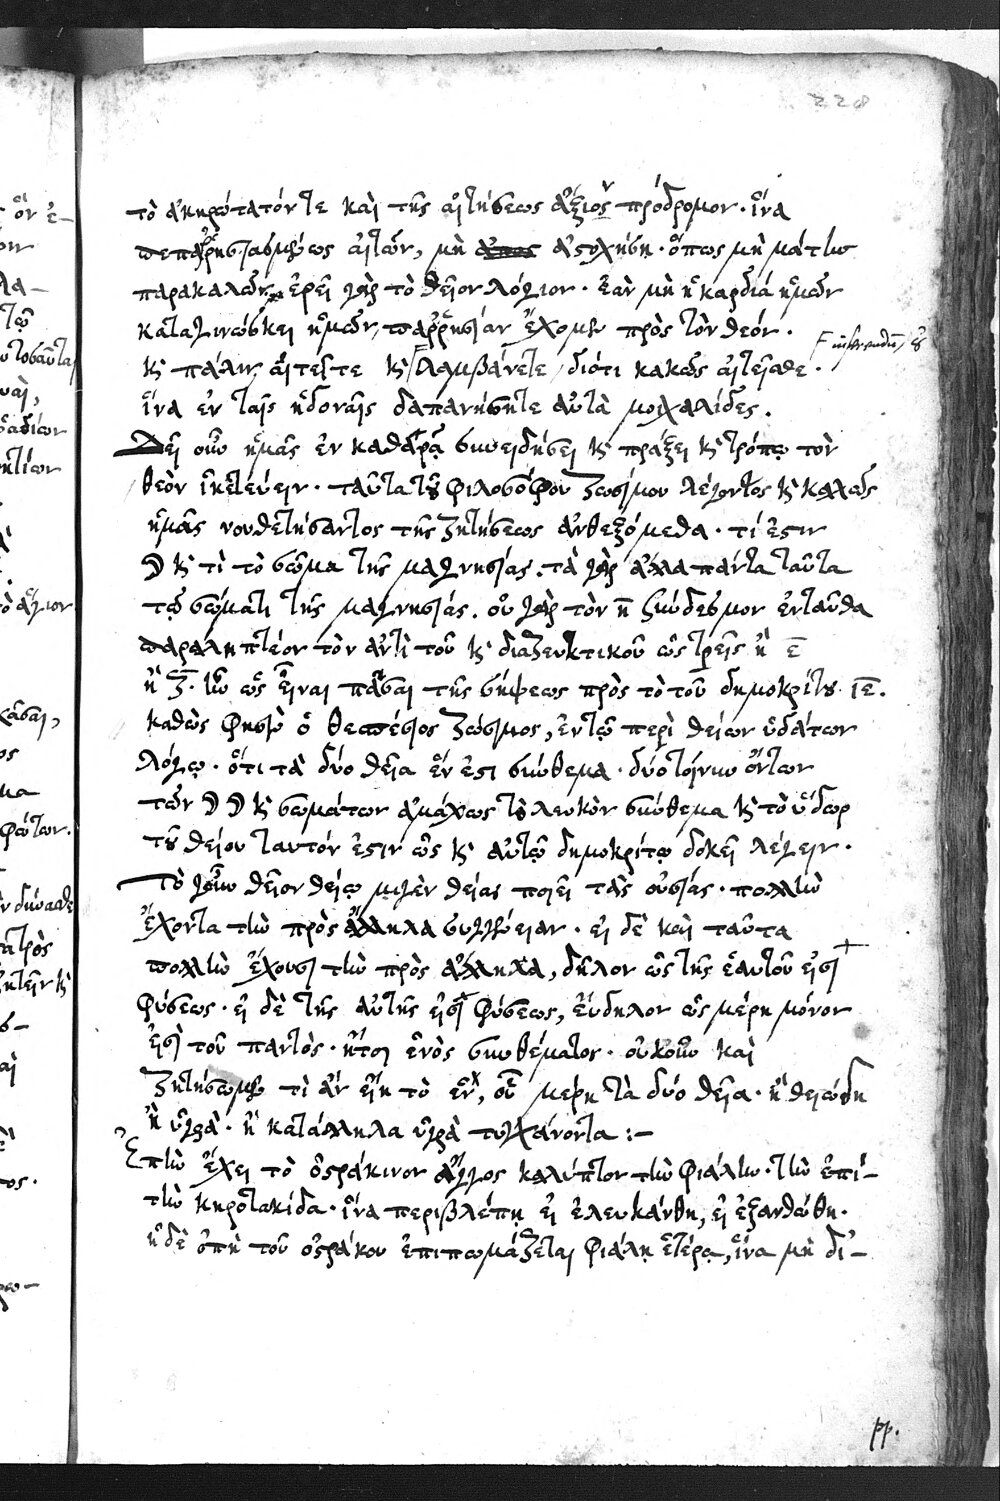 228
τὸ ἀκηρότατόν τε καὶ τῆς αἰτήσεως ἄξιον πρόδρομον· ἵνα
πεπαρρησιασμένως αἰτῶν, μὴ ἀστοχήσῃ· ὅπως μὴ μάτην
παρακαλῶν, ἐρεῖ γὰρ τὸ θεῖον λόγιον· ἐὰν μὴ ἡ καρδιά ἡμῶν
καταγινώσκει ἡμῶν, παρρησίαν ἔχομεν πρὸς τὸν θεόν·
κ πάλιν αἰτεῖτε κ λαμβάνετε, διότι κακῶς αἰτεῖσθε·
ἵνα ἐν ταῖς ἡδοναῖς δαπανήσητε αὐτὰ μοιχαλίδες.
Δεῖ οὖν ἡμᾶς ἐν καθαρᾷ συνειδήσει κ πράξει κ τρόπῳ τὸν
θεὸν ἱκετεύειν· ταῦτα τοῦ φιλοσόφου Ζωσίμου λέγοντος κ καλῶς
ἡμᾶς νουθετήσαντος τῆς ζητήσεως ἀνθεξόμεθα· τί ἐστιν
☽ κ τί τὸ σῶμα τῆς μαγνησίας. τὰ γὰρ ἅμα πάντα ταῦτα
τῷ σώματι τῆς μαγνησίας. οὐ γὰρ τὸν ἢ σύνδεσμον ἐνταῦθα
παραληπτέον τὸν ἀντὶ τοῦ κ διαζευκτικοῦ ὡς τρεῖς ἢ ε
ἢ ϛ· ἵν ὡς εἶναι πᾶσαι τῆς σήψεως πρὸς τὸ τοῦ δημοκρίτου ιε.
καθὼς φησὶν ὁ θεσπέσιος Ζώσιμος, ἐν τῷ περὶ θείων ὑδάτων
λόγῳ· ὅτι τὰ δύο θεῖα ἕν ἐστι σύνθεμα· δύο τοίνυν ὄντων
τῶν ☽ ☽ κ σωμάτων ἀμάχως τὸ λευκὸν σύνθεμα κ τὸ ὕδωρ
τοῦ θείου ταυτόν ἐστιν ὡς κ αὐτῷ δημοκρίτῳ δοκεῖ λέγειν·
Τὸ γοῦν θεῖον θείῳ μιγὲν θείας ποιεῖ τὰς οὐσίας· πολλὴν
ἔχοντα τὴν πρὸς ἄλληλα συγγένειαν· εἰ δὲ καὶ ταῦτα
πολλὴν ἔχουσι τὴν πρὸς ἄλληλα, δῆλον ὡς τῆς ἑαυτοῦ εἰσι
φύσεως· εἰ δὲ τῆς αὐτῆς εἰσι φύσεως, εὔδηλον ὡς μέρη μόνον
εἰσὶ τοῦ παντὸς· ἤτοι ἑνὸς συνθέματος· οὐκοῦν καὶ
ζητήσωμεν τί ἂν εἴη τὸ ἓν, οὗ μέρη τὰ δύο θεῖα· ἢ θειώδη
ἢ ὑγρὰ· ἢ κατάλληλα ὑγρὰ τυγχάνοντα :–
Ἐπὴν ἔχει τὸ ὀστράκινον ἄγγος καλύπτον τὴν φιάλην· τὴν ἐπί–
τὴν κηροτακίδα· ἵνα περιβλέπῃ εἰ ἐλευκάνθη, εἰ ἐξανθώθη·
ἡ δὲ ὀπὴ τοῦ ὀστράκου ἐπιπωμάζεται φιάλῃ ἑτέρᾳ, ἵνα μὴ δι–
pp.